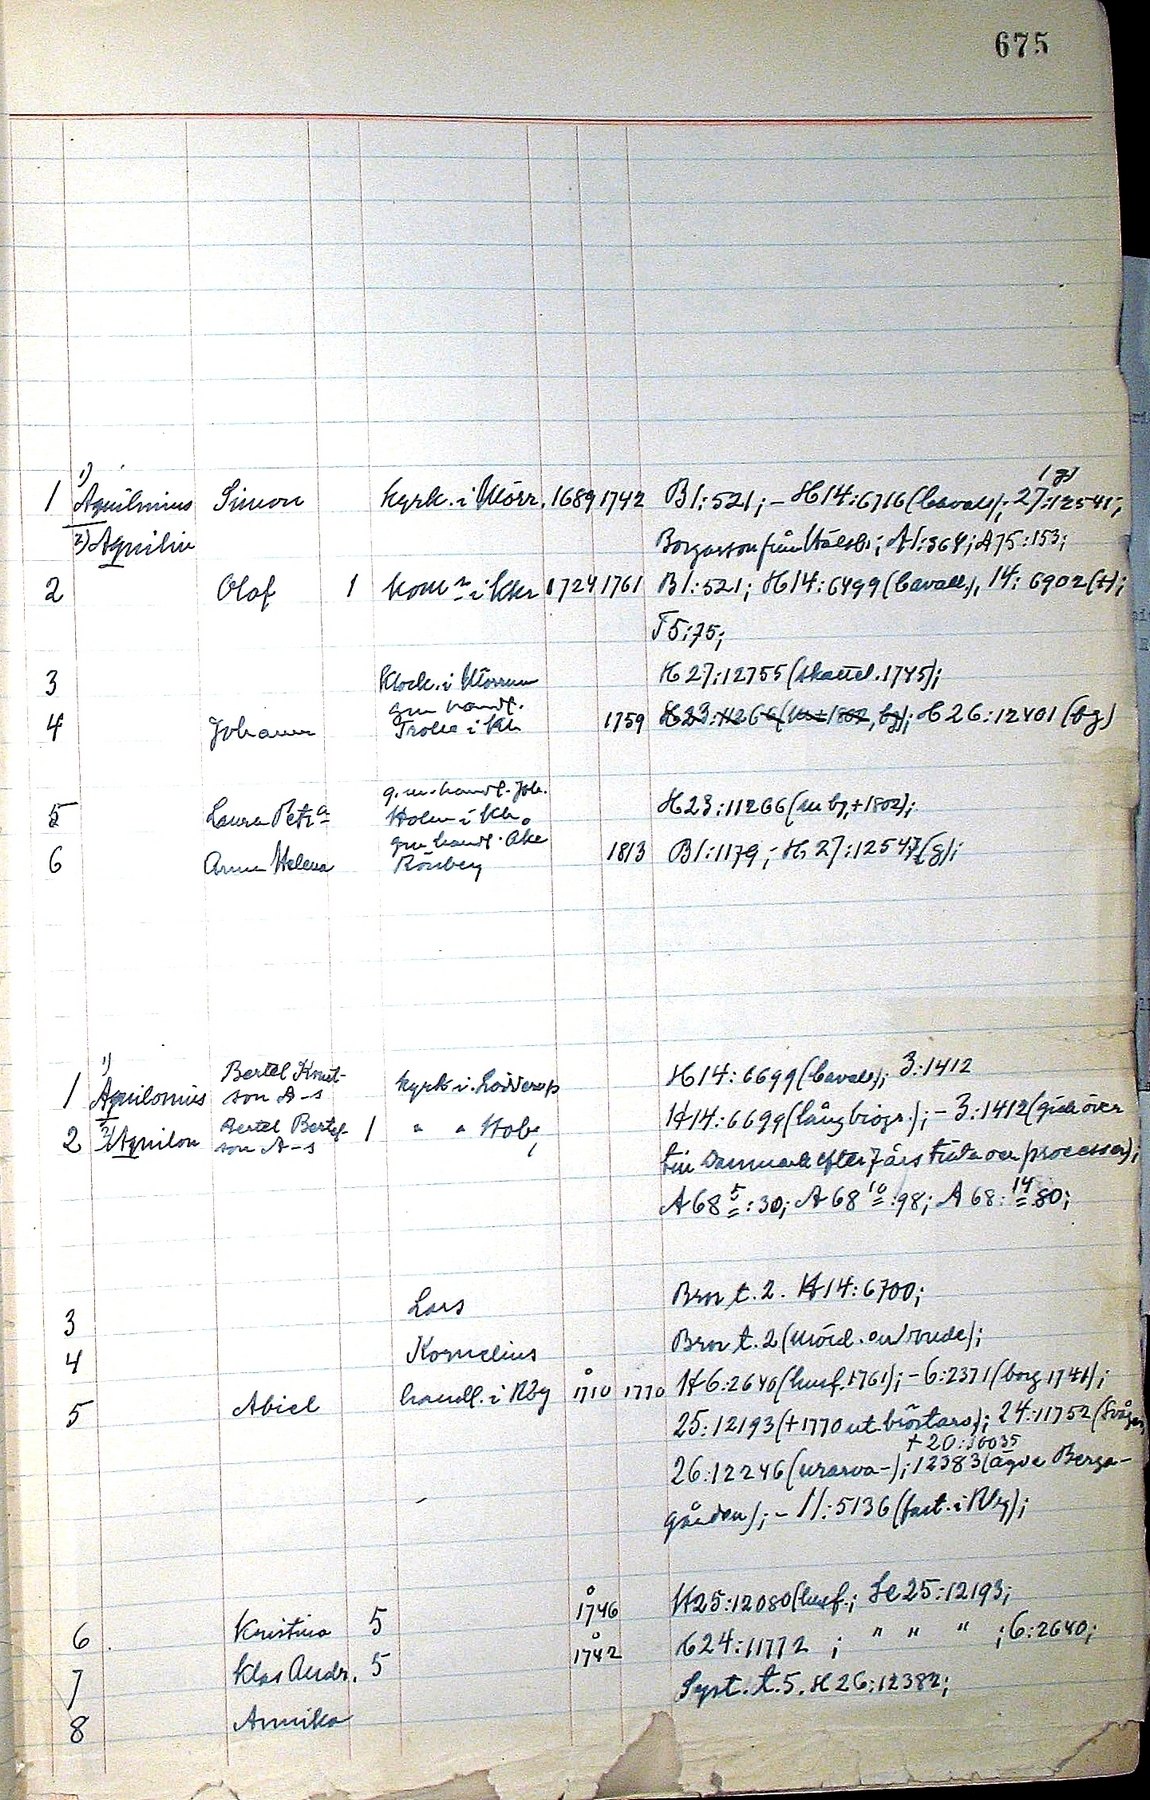 675
1)
1 Aquilinius Simon kyrk. i Mörr. 1689 1742 B1:521; – H14:6716 (Cavall.); 27:12541 (g);
2) Aquilin Borgarson från A1:364; A75:153;
2 Olof 1 kom.r i Khn 1724 1761 B1:521; H14:6499 (Cavall.), 14:6902 (+);
T5:75;
3 Klock. i Mörrum H27:12755 (skattel. 1745);
4 Johanna g.m. handl. Trolle i Kh 1759 H23:11266 (m + 1802, bg); H26:12401 (bg)
5 Laura Petr.a g.m. handl. Joh. Holm i Kh. H23:11266 (m bg, + 1802);
6 Anna Helena g.m. handl. Åke Rönberg 1813 B1:1179; – H27:12547 (g);
1)
1 Aquilonius Bertel Knutson A–s kyrk. i Lösserup H14:6699 (Cavall.); 3:1412
2 2) Aquilon Bertel Bertelson A–s 1 " " Hoby H14:6699 (lång biogr.); – 3:1412 (gick över
till Danmark efter 7 års processer);
A68 5:30; A68 10:98; A68:14 80;
3 Lars Bror t. 2. H14:6700;
4 Kornelius Bror t. 2 (mörd. en bonde);
5 Abiel handl. i Rby 1710 1770 H6:2640 (husf. 1761); – 6:2371 (borg 1741);
25:12193 (+ 1770 ut. bröstarv.); 24:11752 (Svåger,
+ 20:10035
26:12246 (urarva–); 12383 (ägde Berga–
gården); – 11:5136 (fast. i Rby);
6 Kristina 5 1746 H25:12080 (husf.; Se 25:12193;
7 Klas Andr. 5 1742 624:11772 ; " " " ; 6:2640;
8 Annika Syst. t. 5. H26:12382;